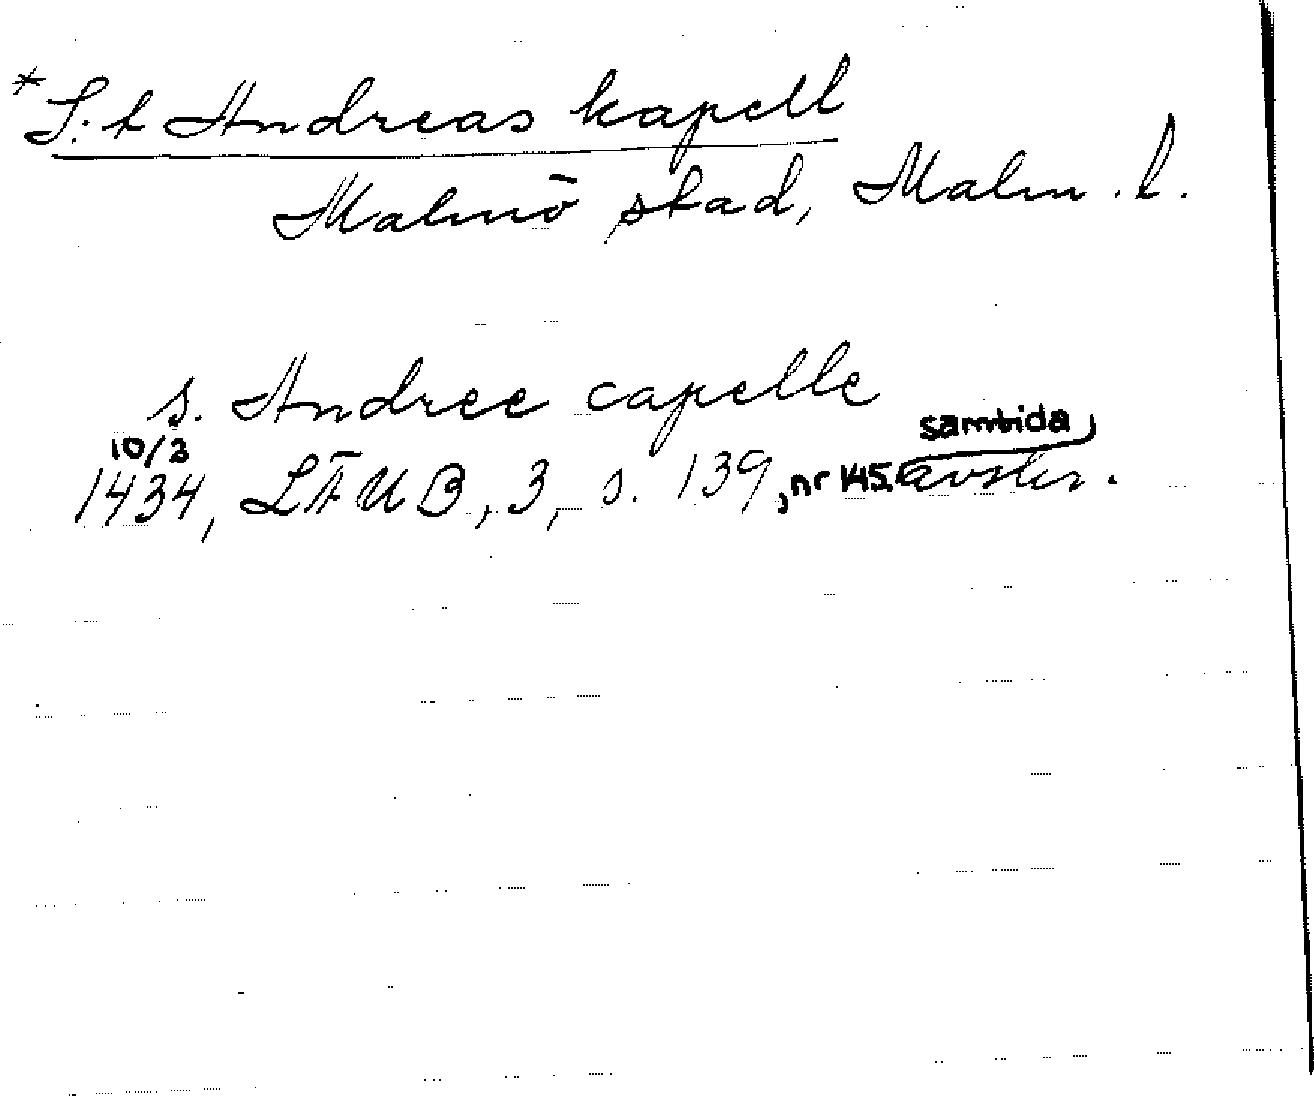 *S:t Andreas kapell
Malmö stad, Malm. l.
s. Andree capelle
10/3 samtida
1434, LÄUB, 3, s. 139, nr 145. avskr.